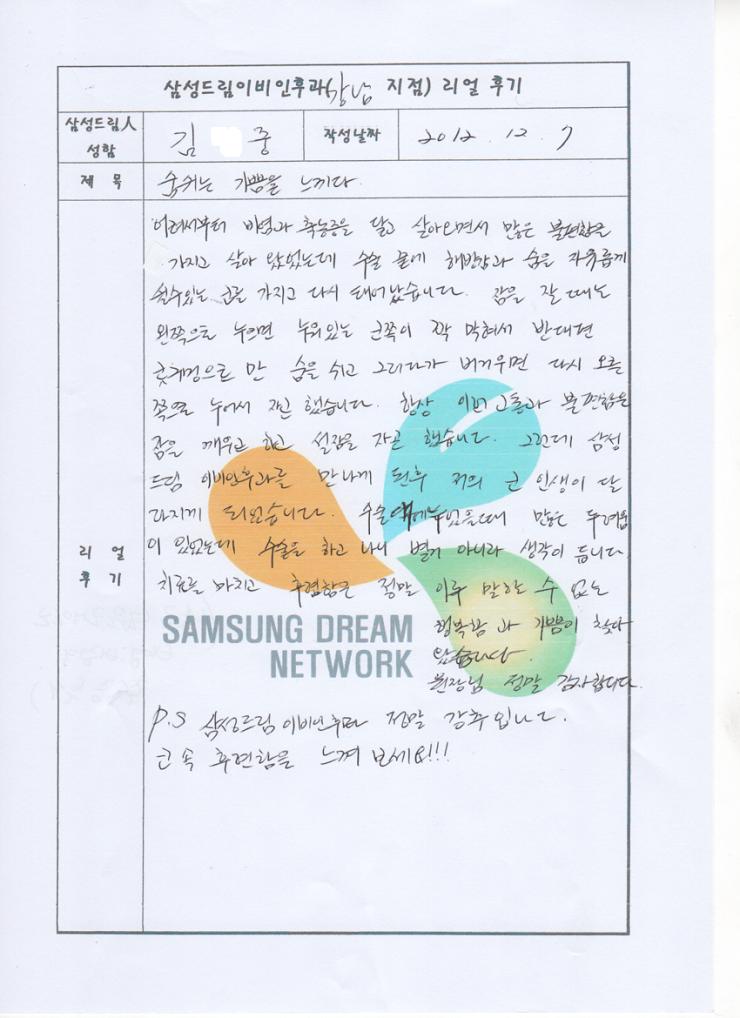 삼성드림이비인후과(강남 지점) 리얼 후기
삼성드림人 성함
김 중
작성날짜
2012. 12. 7
제 목
숨쉬는 기쁨을 느끼다.
리 얼 후 기
어려서부터 비염과 축농증을 달고 살아오면서 많은 불편함을
가지고 살아 왔었는데 수술 끝에 해방감과 숨을 자유롭게
쉴수있는 코를 가지고 다시 태어났습니다. 잠을 잘 때는
왼쪽으로 누우면 누워있는 코쪽이 꽉 막혀서 반대편
콧구멍으로 만 숨을 쉬고 그러다가 버거우면 다시 오른
쪽으로 누어서 자곤 했습니다. 항상 이런 고통과 불편함은
잠을 깨우곤 하고 설잠을 자곤 했습니다. 그런데 삼성
드림 이비인후과를 만나게 된후 저의 코 인생이 달
라지게 되었습니다. 수술 누었을때 많은 두려움
이 있었는데 수술을 하고 나니 별거 아니라 생각이 듭니다.
치료를 마치고 후련함은 정말 이루 말할 수 없는
행복함 과 기쁨이 찾아
왔습니다.
원장님 정말 감사합니다.
P.S 삼성드림 이비인후과 정말 강추입니다.
코 속 후련함을 느껴 보세요!!!
SAMSUNG DREAM
NETWORK